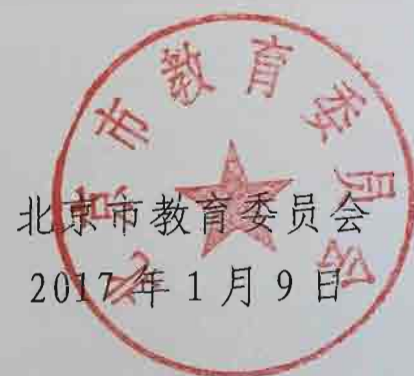 北京市教育委员会
北京市教育委员会
2017年1月9日